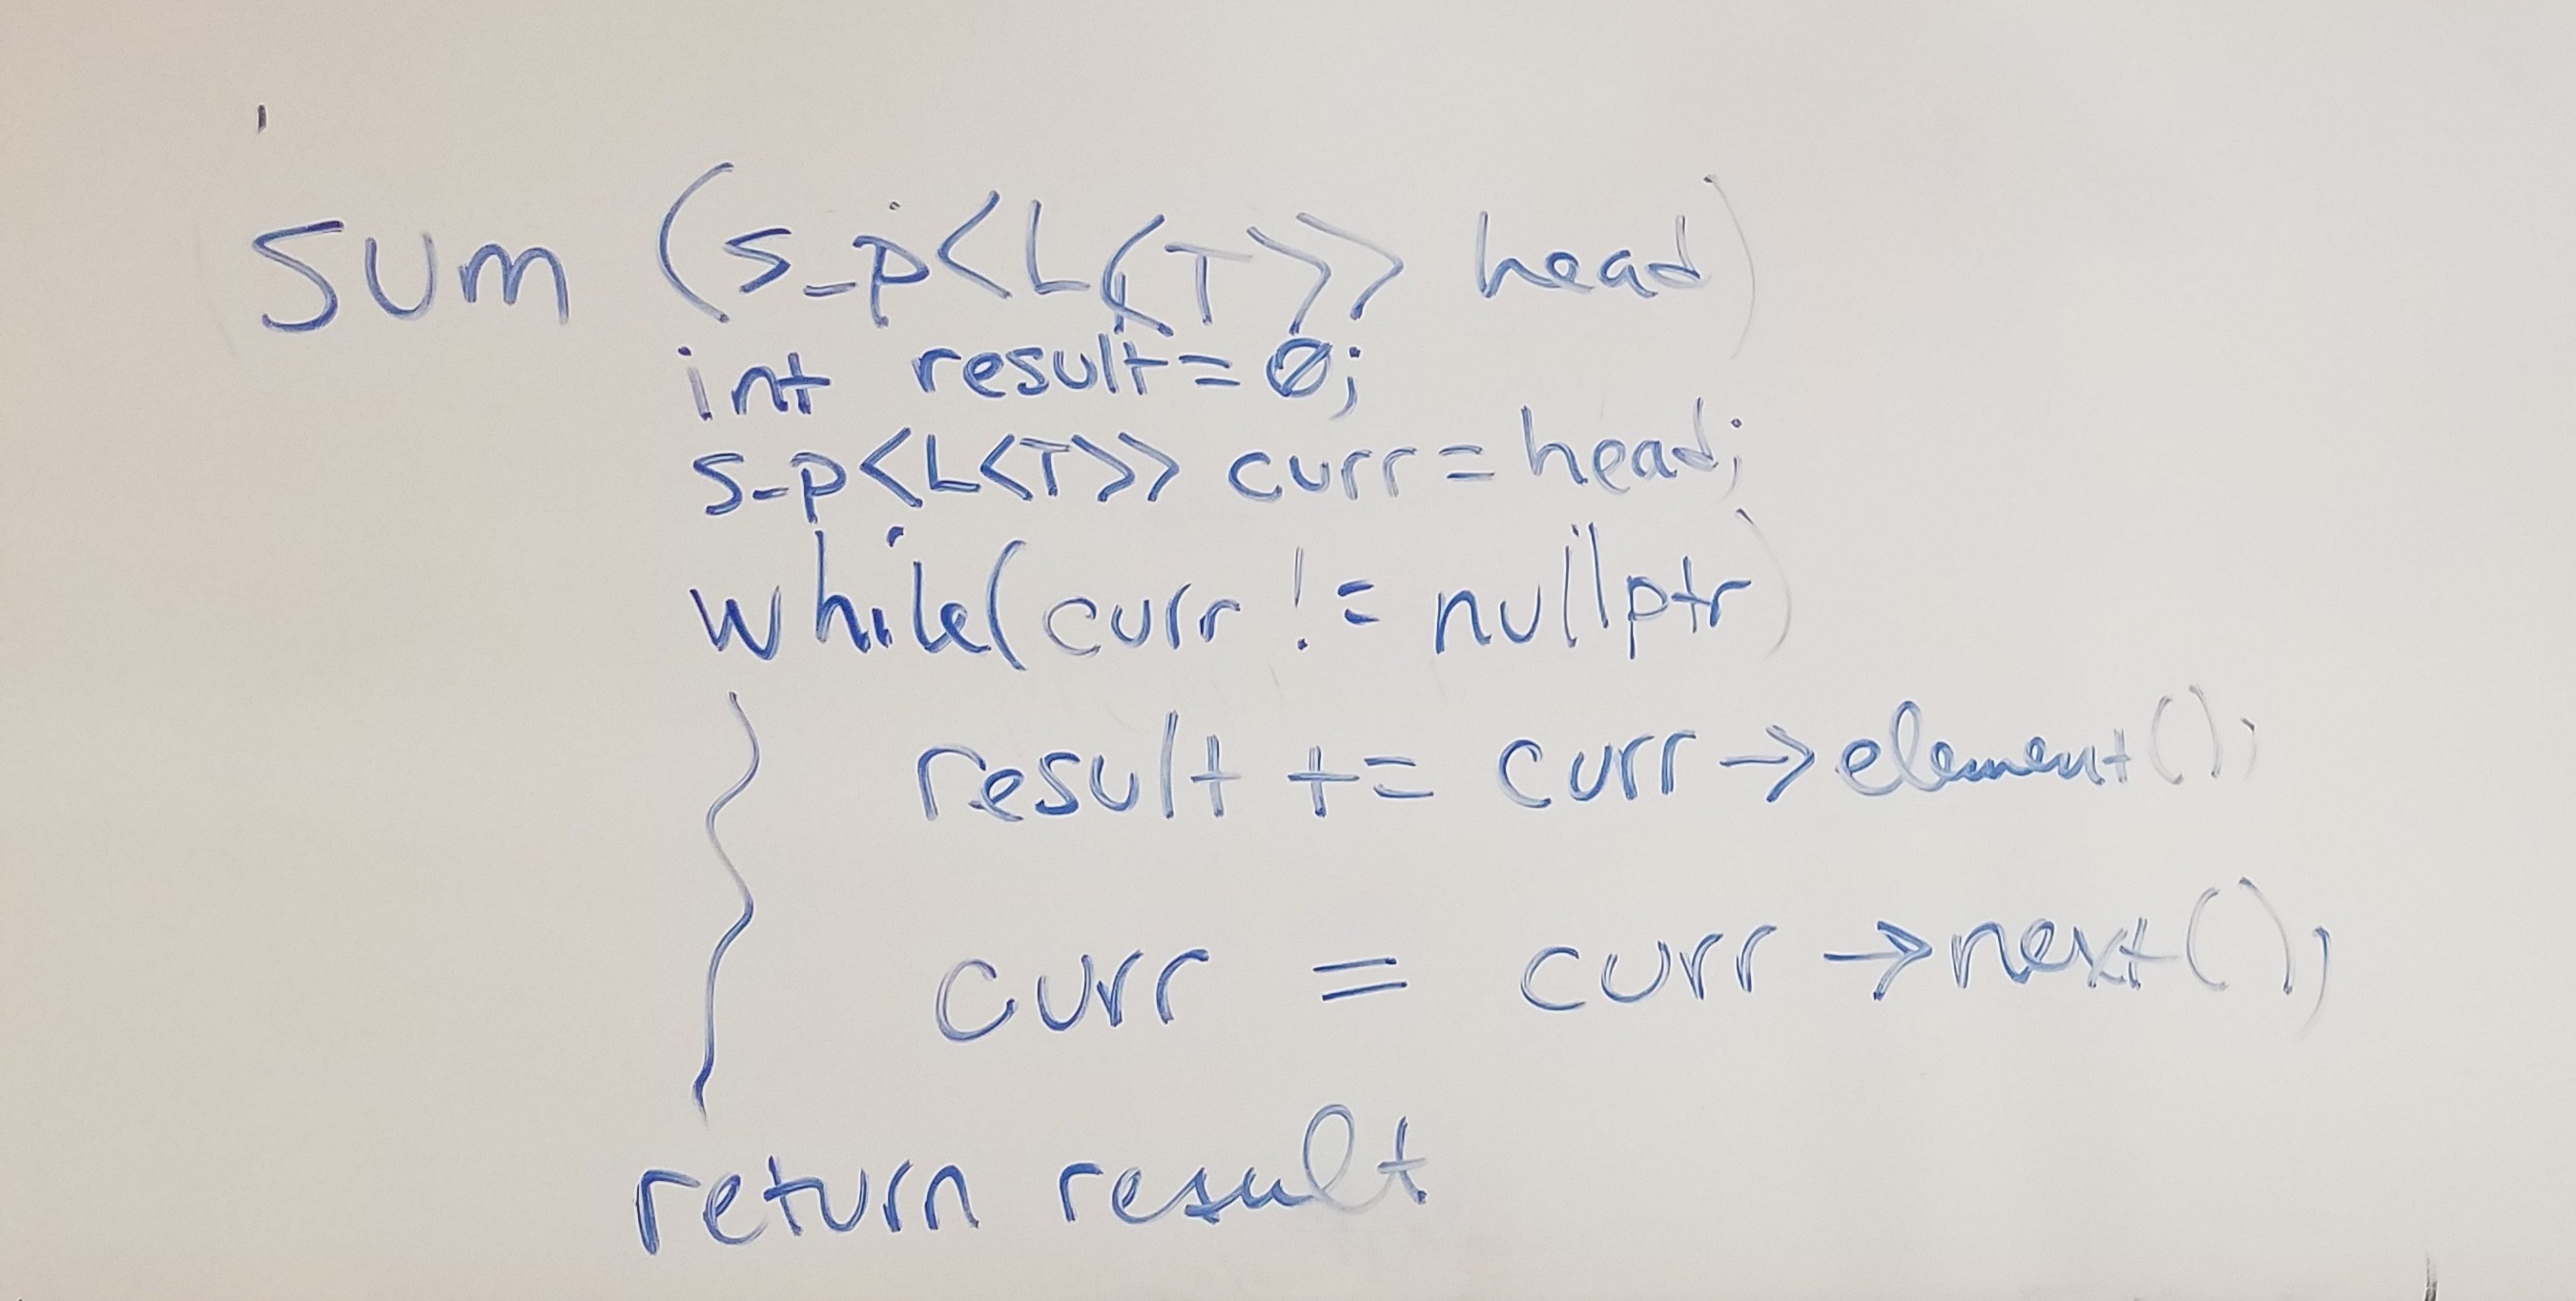 sum (s_p<L<T>> head)
int result = 0;
s_p<L<T>> curr = head;
while(curr != nullptr)
result += curr->element();
curr = curr->next();
return result